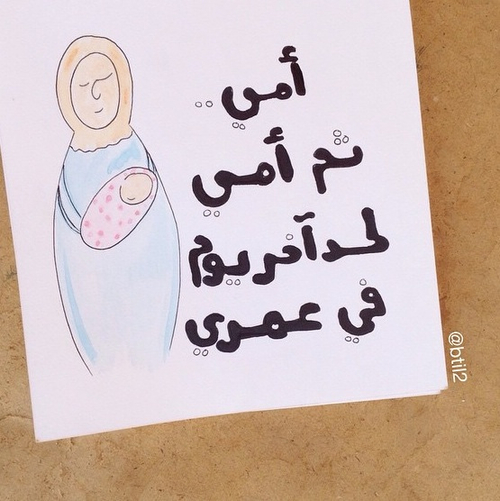 أمي ..
ثم أمي
لحد آخر يوم
في عمري
@btil2